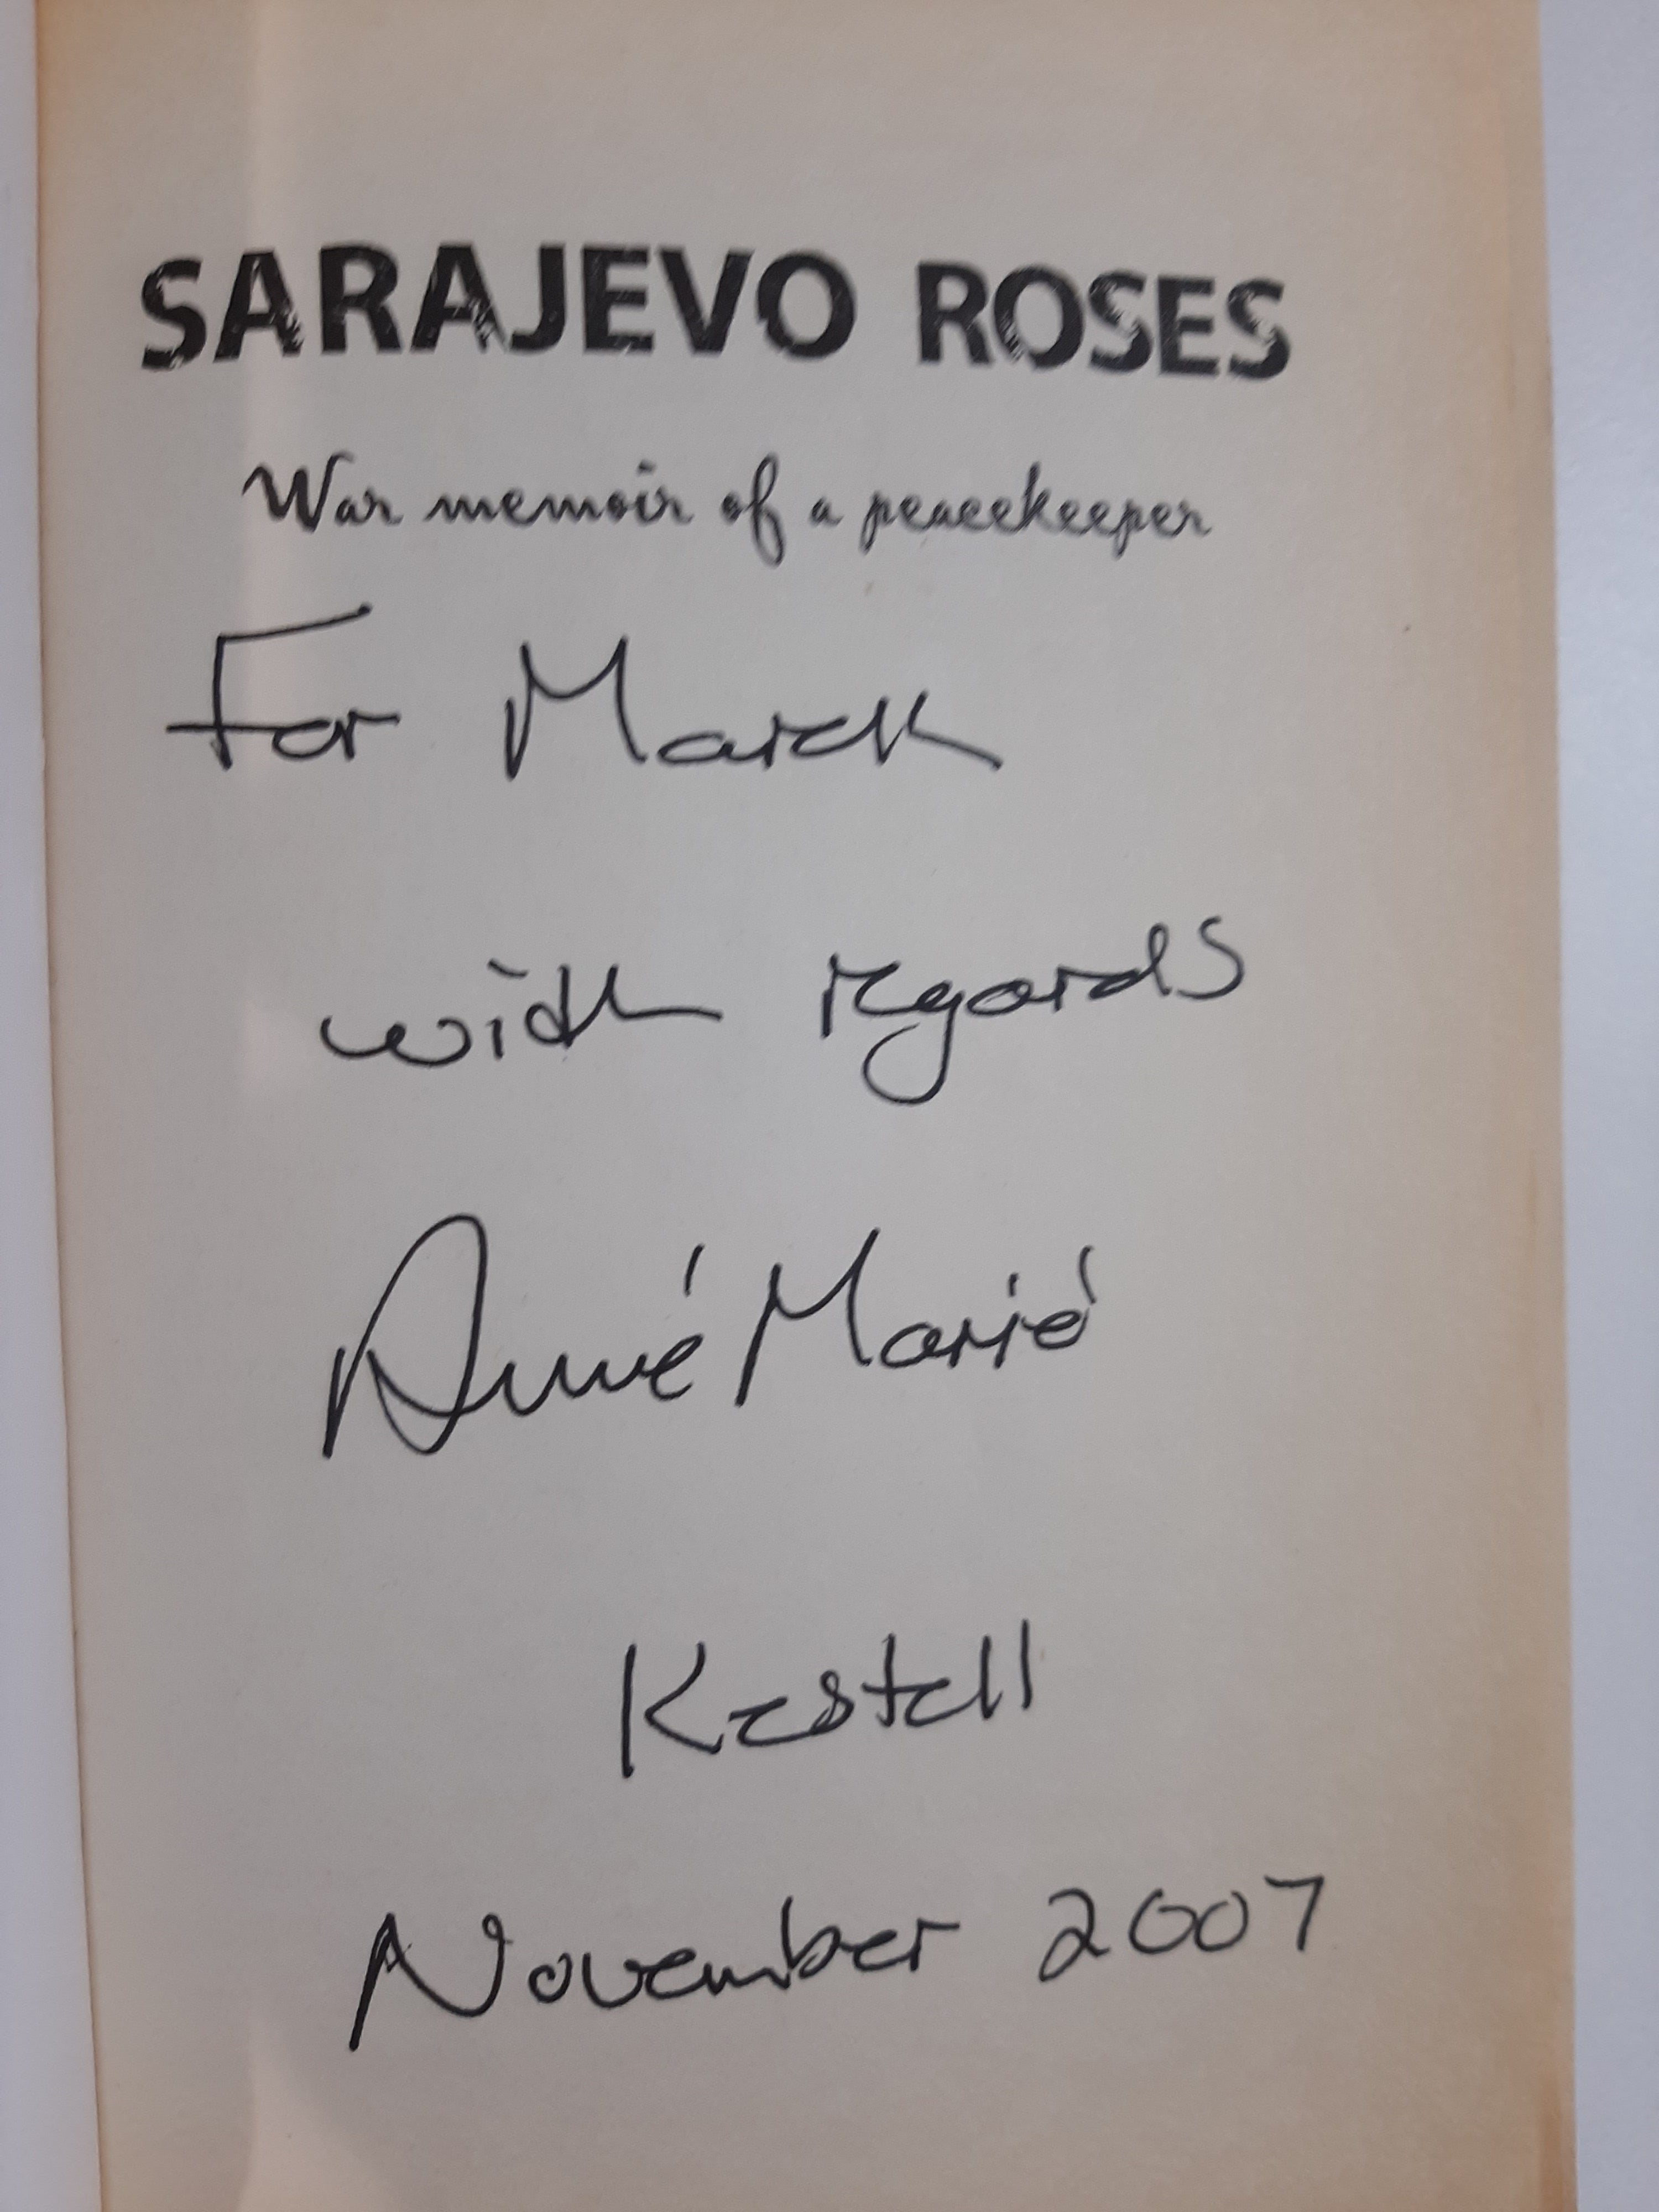 SARAJEVO ROSES
War memoir of a peacekeeper
For Marek
with regards
Anné Marié
Kestell
November 2007